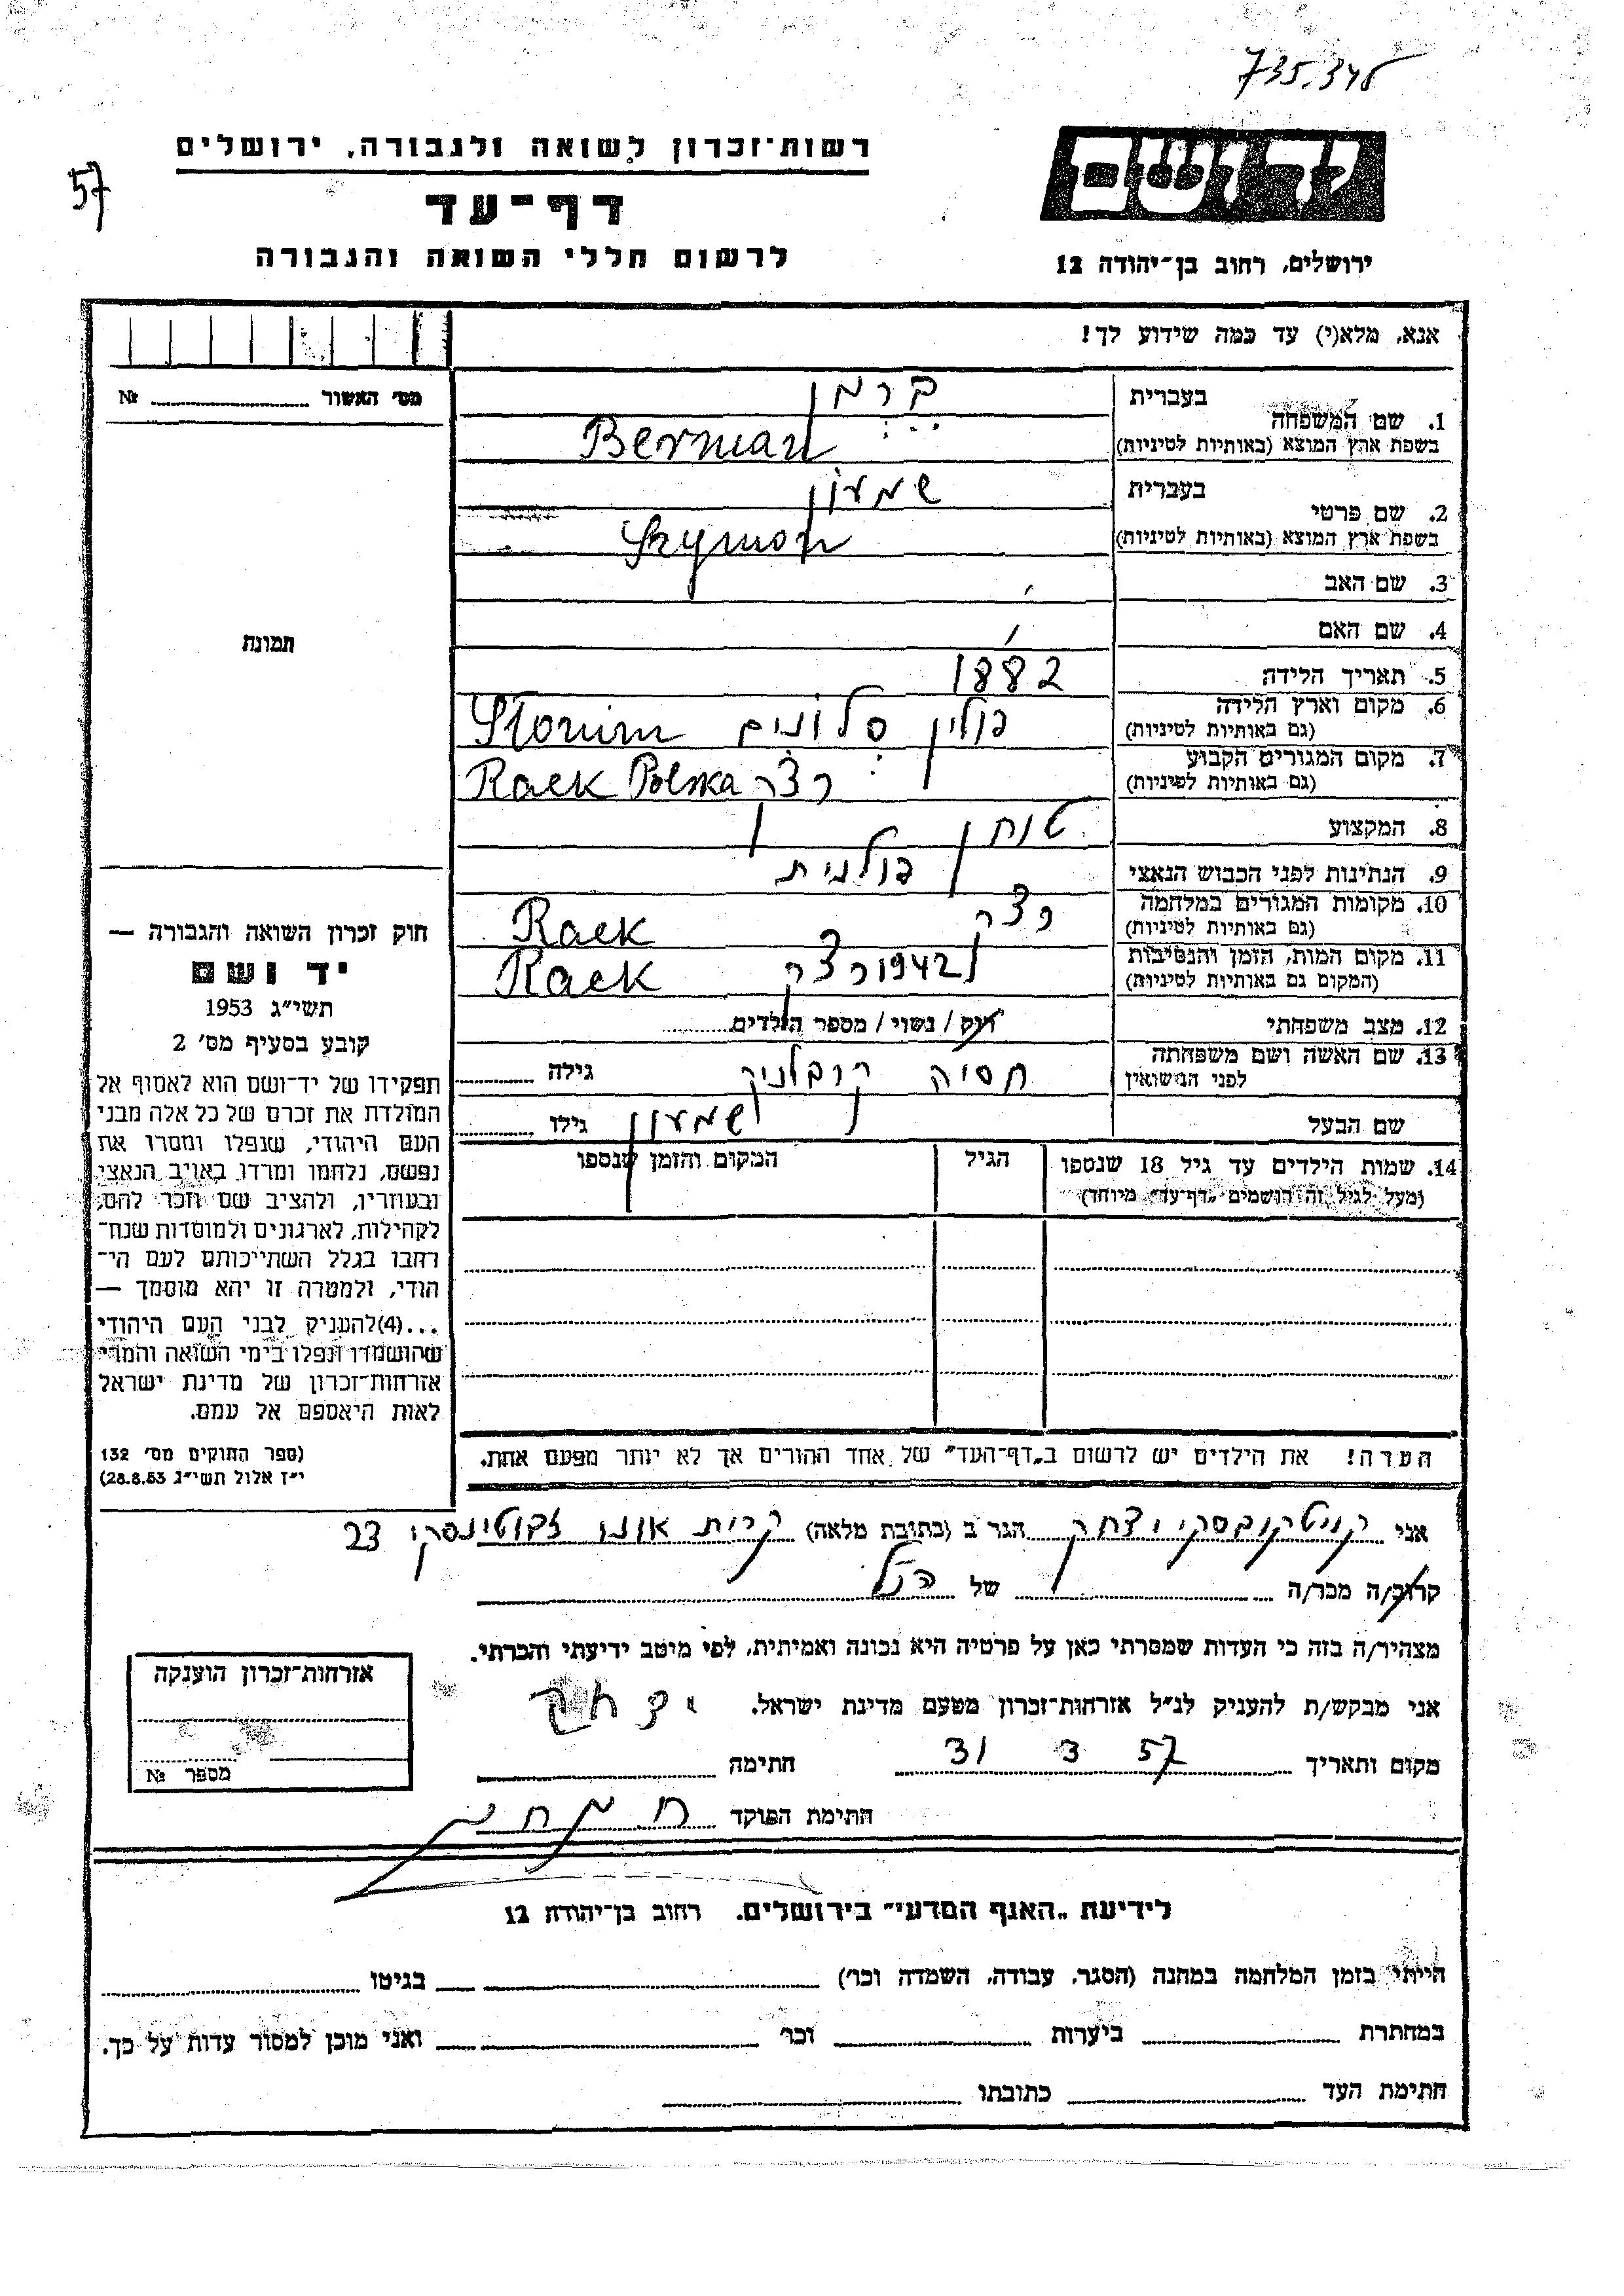 735.346
57
רשות־זכרון לשואה ולגבורה, ירושלים
דף־עד
לרשום חללי השואה והגבורה
יד ושם
ירושלים, רחוב בן־יהודה 12
אנא, מלא(י) עד כמה שידוע לך!
מס׳ האשור № 
1. שם המשפחה בעברית ברמן
בשפת ארץ המוצא (באותיות לטיניות) Berman
2. שם פרטי בעברית שמעון
בשפת ארץ המוצא (באותיות לטיניות) Szymon
3. שם האב
4. שם האם
5. תאריך הלידה 1882
6. מקום וארץ הלידה (גם באותיות לטיניות) פולין סלונים Słonim
7. מקום המגורים הקבוע (גם באותיות לטיניות) רצק Raek Polska
8. המקצוע טוחן
9. הנתינות לפני הכבוש הנאצי פולנית
10. מקומות המגורים במלחמה (גם באותיות לטיניות) רצק Raek
11. מקום המות, הזמן והנסיבות (המקום גם באותיות לטיניות) 1942 רצק Raek
12. מצב משפחתי רוק / נשוי / מספר הילדים
13. שם האשה ושם משפחתה לפני הנישואין חסיה גילה
שם הבעל שמעון גילו
14. שמות הילדים עד גיל 18 שנספו
(מעל לגיל זה רושמים „דף־עד״ מיוחד)
הגיל
המקום והזמן שנספו
הערה! את הילדים יש לרשום ב„דף־העד״ של אחד ההורים אך לא יותר מפעם אחת.
תמונה
חוק זכרון השואה והגבורה —
יד ושם
תשי״ג 1953
קובע בסעיף מס׳ 2
תפקידו של יד־ושם הוא לאסוף אל
המולדת את זכרם של כל אלה מבני
העם היהודי, שנפלו ומסרו את
נפשם, נלחמו ומרדו באויב הנאצי
ובעוזריו, ולהציב שם וזכר להם,
לקהילות, לארגונים ולמוסדות שנח־
רבו בגלל השתייכותם לעם הי־
הודי, ולמטרה זו יהא מוסמך —
...(4) להעניק לבני העם היהודי
שהושמדו ונפלו בימי השואה והמרי
אזרחות־זכרון של מדינת ישראל
לאות היאספם אל עמם.
(ספר החוקים מס׳ 132
י״ז אלול תשי״ג 28.8.53)
אני קויטקובסקי יצחק הגר ב (כתובת מלאה) קרית אונו ז׳בוטינסקי 23
קרוב/ה מכר/ה של הנ״ל
מצהיר/ה בזה כי העדות שמסרתי כאן על פרטיה היא נכונה ואמיתית, לפי מיטב ידיעתי והכרתי.
אני מבקש/ת להעניק לנ״ל אזרחות־זכרון מטעם מדינת ישראל.
מקום ותאריך 31 3 57 חתימה יצחק
חתימת הפוקד
אזרחות־זכרון הוענקה
מספר №
לידיעת „האגף המדעי״ בירושלים, רחוב בן־יהודה 12
הייתי בזמן המלחמה במחנה (הסגר, עבודה, השמדה וכו׳) בגיטו
במחתרת ביערות וכו׳ ואני מוכן למסור עדות על כך.
חתימת העד כתובתו